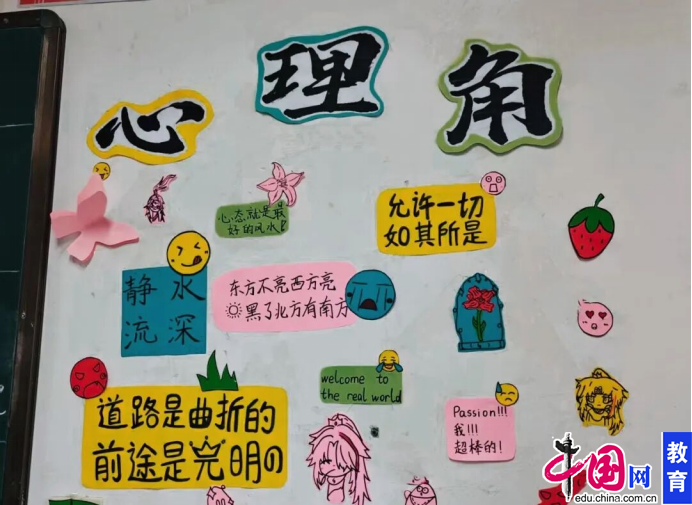 心理角
心态就是最
好的风水!
允许一切
如其所是
静水
流深
东方不亮西方亮
黑了北方有南方
welcome to
the real world
道路是曲折的
前途是光明の
Passion!!!
我!!!
超棒的!
中国网
edu.china.com.cn
教育